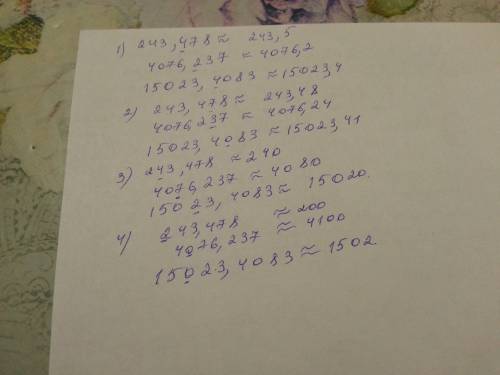 1) 243,478 ≈ 243,5
4076,237 ≈ 4076,2
15023,4083 ≈ 15023,4
2) 243,478 ≈ 243,48
4076,237 ≈ 4076,24
15023,4083 ≈ 15023,41
3) 243,478 ≈ 240
4076,237 ≈ 4080
15023,4083 ≈ 15020.
4) 243,478 ≈ 200
4076,237 ≈ 4100
15023,4083 ≈ 1502.